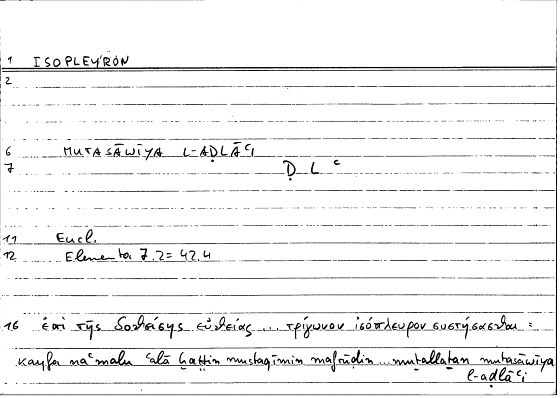 1 ISOPLEYRON
2
6 MUTASĀWĪYA L-AḌLĀʿI
7 Ḍ L ʿ
11 Eucl.
12 Elementa 7.2 = 42.4
16 ἐπὶ τῆς δοθείσης εὐθείας ... τρίγωνον ἰσόπλευρον συστήσασθαι :
kayfa naʿmalu ʿalā ḫaṭṭin mustaqīmin mafrūḍin ... muṯallaṯan mutasāwiya
l-aḍlāʿi